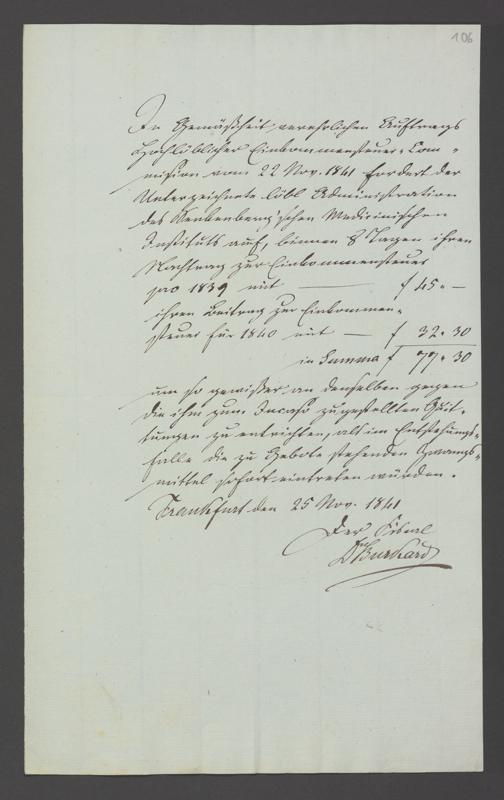 106
In Gemäßheit verehrlichen Auftrags
Hochlöblicher Einkommensteuer-Com-
mission vom 22 Nov. 1841 fordert der
Unterzeichnete löbl. Administration
des Senkenberg'schen Medicinischen
Instituts auf, binnen 8 Tagen ihren
Nachtrag zur Einkommensteuer
pro 1839 mit — f 45 " —
ihren Beitrag zur Einkommen-
steuer für 1840 mit — f 32 " 30
in Summa f 77 " 30
um so gewißer an denselben gegen
die ihm zum Incaßo zugestellten Quit-
tungen zu entrichten, als im Entstehungs-
falle die zu Gebote stehenden Zwangs-
mittel sofort eintreten würden.
Frankfurt den 25 Nov. 1841
Der Fiscal
Dr Burkard